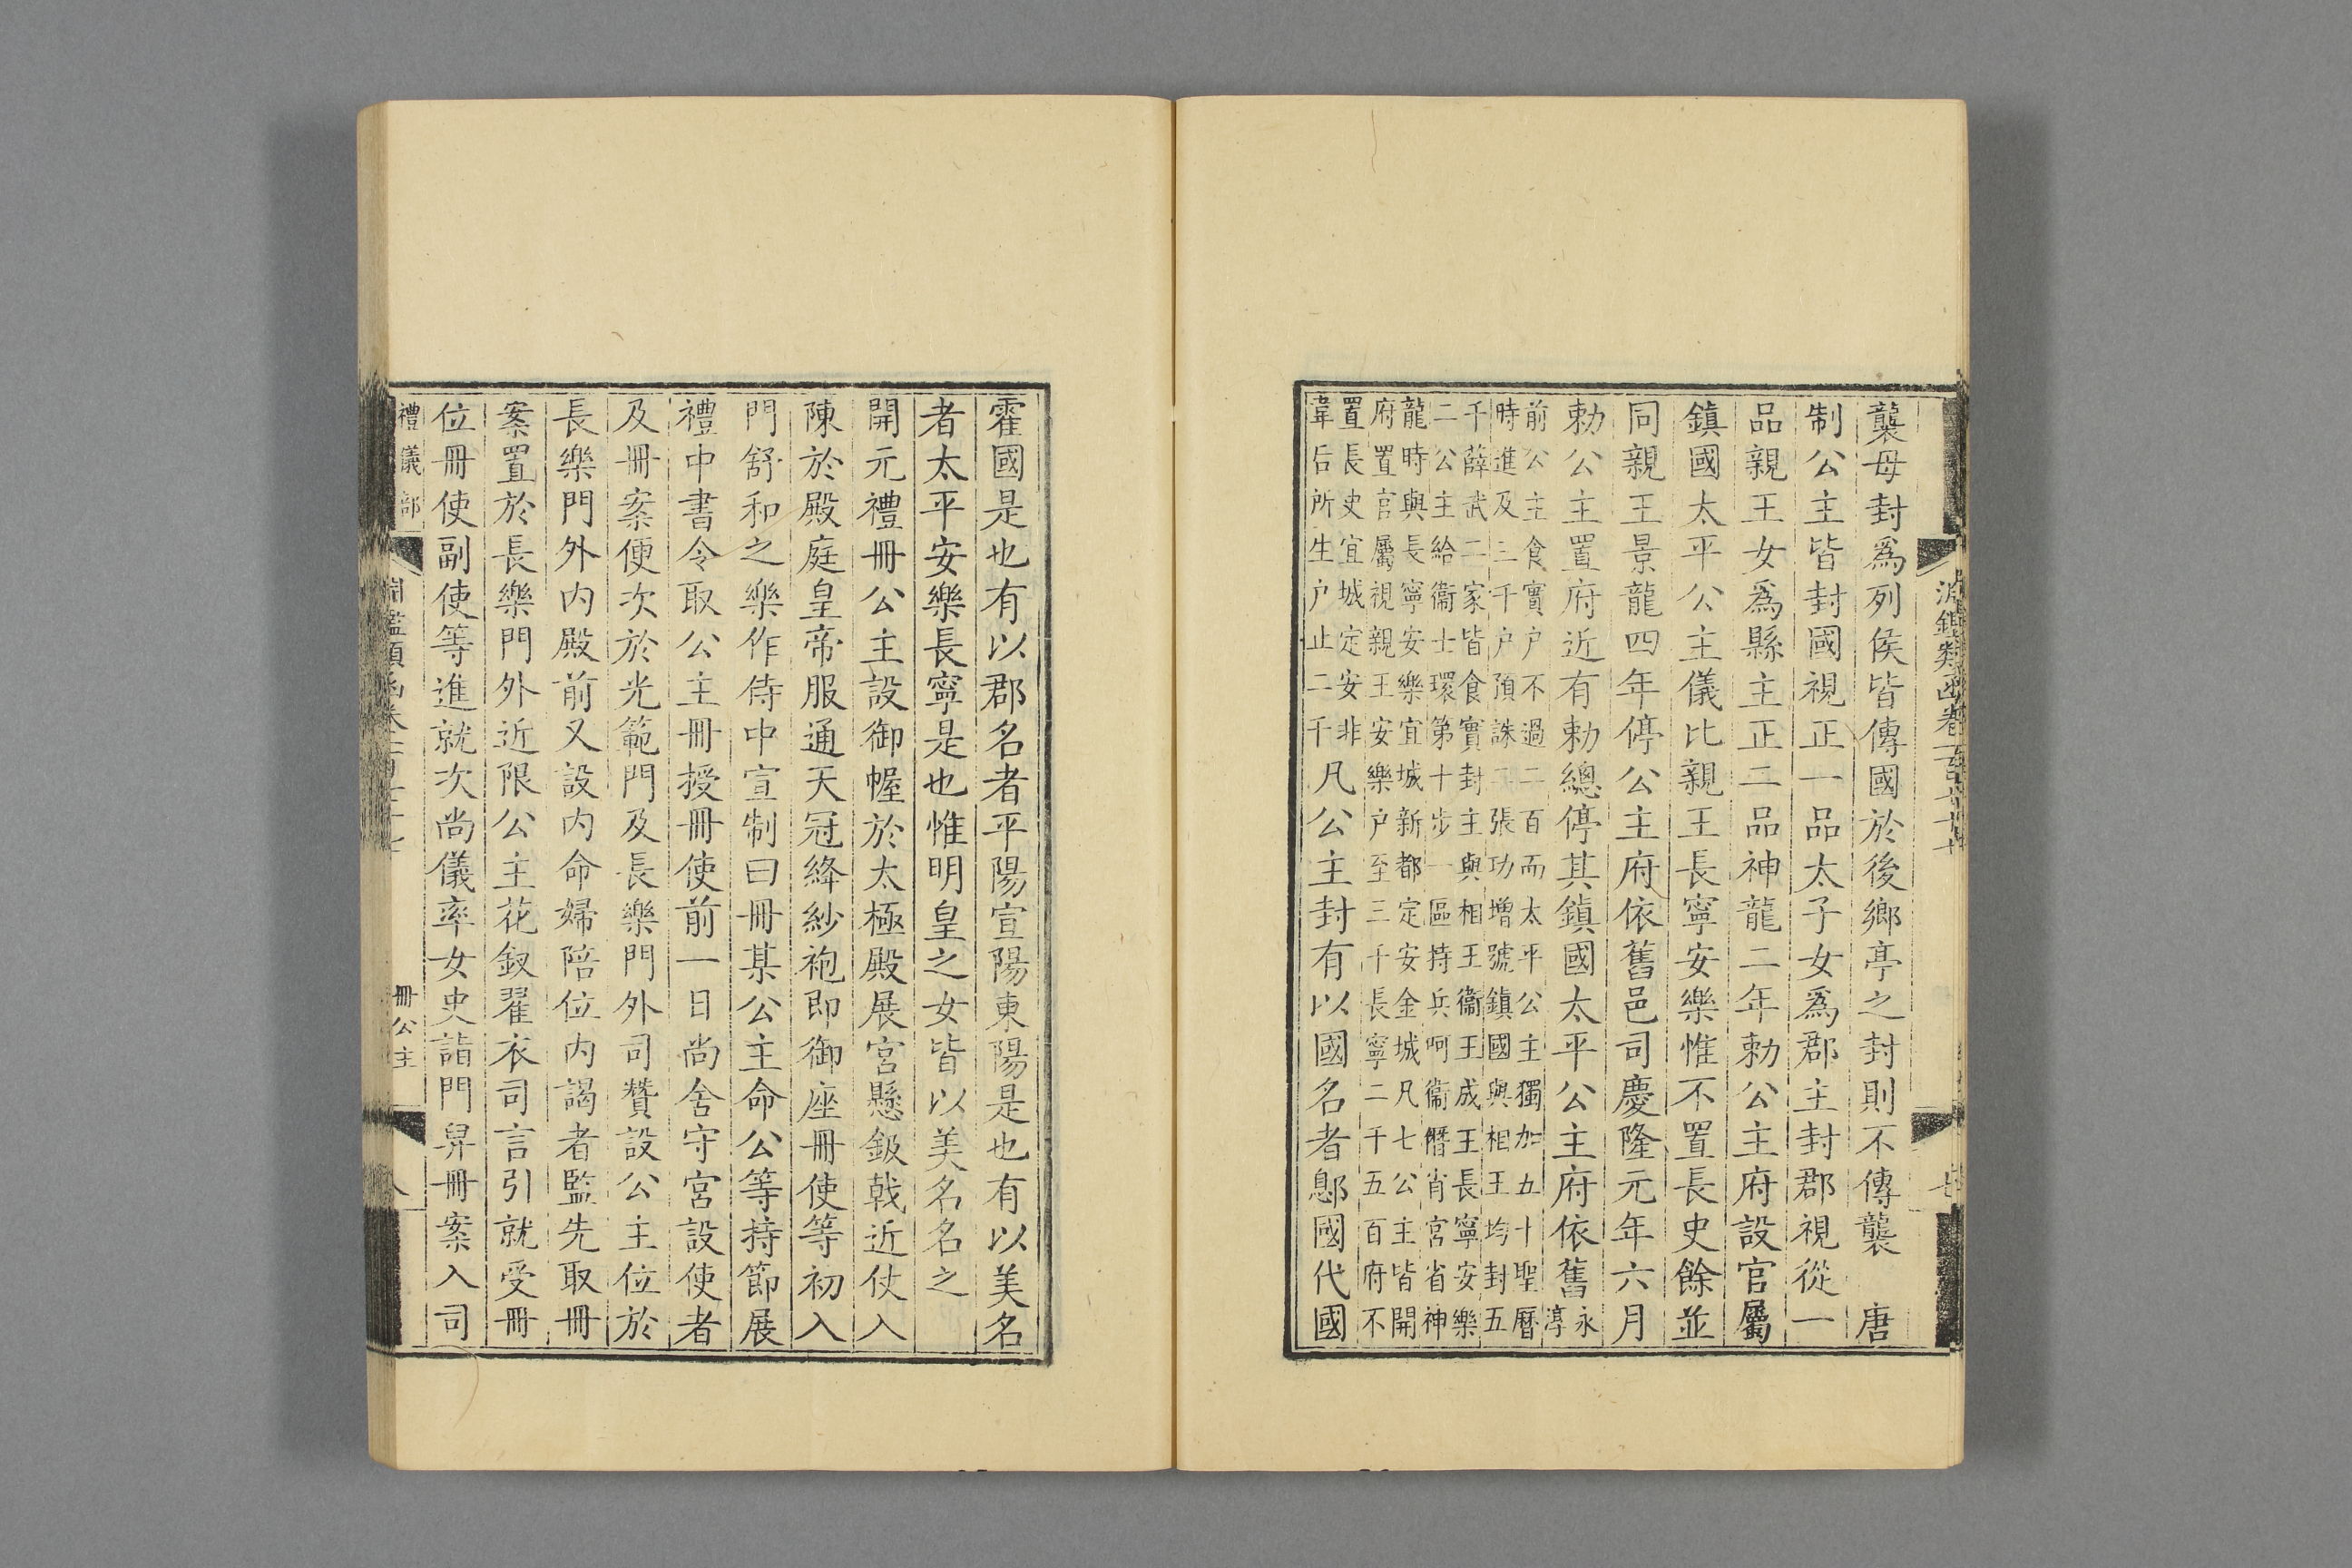 襲母封爲列侯皆傳國於後鄉亭之封則不傳襲　唐
制公主皆封國視正一品太子女爲郡主封郡視從一
品親王女爲縣主正二品神龍二年勅公主府設官屬
鎮國太平公主儀比親王長寧安樂惟不置長史餘並
同親王景龍四年停公主府依舊邑司慶隆元年六月
勅公主置府近有勅總停其鎮國太平公主府依舊
永
淳
前公主食實户不過三百而太平公主獨加五十聖曆
時進及三千户預誅二張功增號鎮國與相王均封五
千薛武二家皆食實封主與相王衞王成王長寧安樂
二公主給衞士環第十步一區持兵呵衞僭肖宮省神
龍時與長寧安樂宜城新都定安金城凡七公主皆開
府置官屬視親王安樂户至三千長寧二千五百府不
置長史宜城定安非
韋后所生户止二千
凡公主封有以國名者鄎國代國
霍國是也有以郡名者平陽宣陽東陽是也有以美名
者太平安樂長寧是也惟明皇之女皆以美名名之
開元禮冊公主設御幄於太極殿展宮懸鈒戟近仗入
陳於殿庭皇帝服通天冠絳紗袍即御座冊使等初入
門舒和之樂作侍中宣制曰冊某公主命公等持節展
禮中書令取公主冊授冊使前一日尚舍守宮設使者
及冊案便次於光範門及長樂門外司贊設公主位於
長樂門外內殿前又設內命婦陪位內謁者監先取冊
案置於長樂門外近限公主花釵翟衣司言引就受冊
位冊使副使等進就次尚儀率女史詣門舁冊案入司
禮儀部
冊公主
八